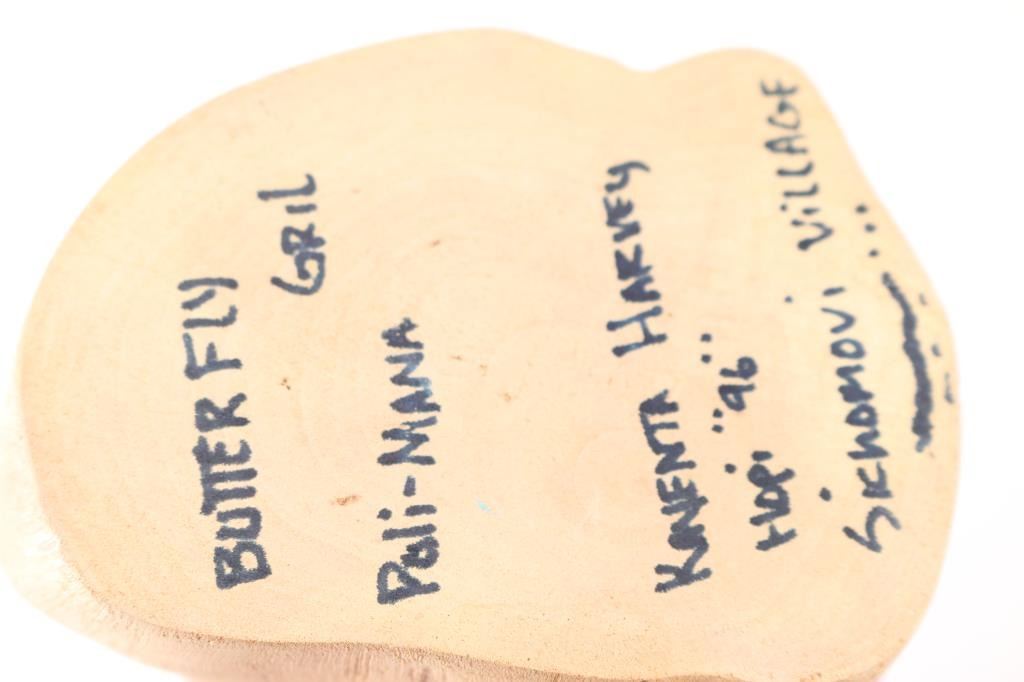 BUTTERFLY
GRIL
Pali-MANA
KAVENTA HARVEY
HOPI "96"
SICHOMOVI VILLAGE